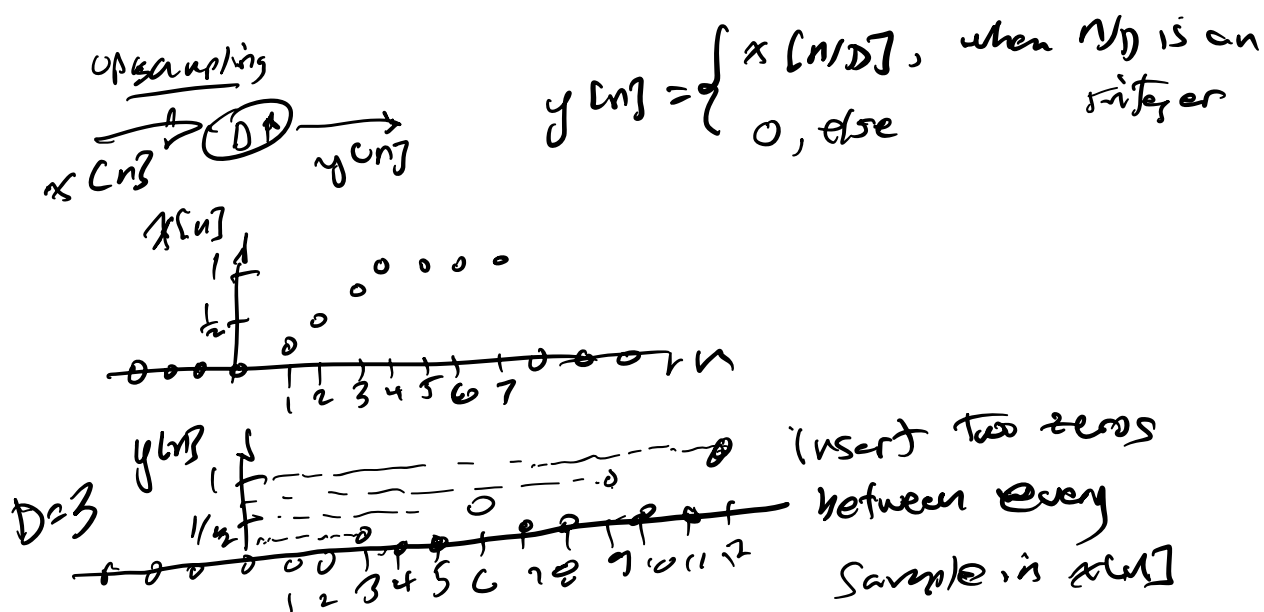 upsampling
x[n] D↑ y[n]
y[n] = { x[n/D], when n/D is an integer
0, else
x[n]
1
1/2
1 2 3 4 5 6 7 n
y[n]
D=3
1
1/2
1 2 3 4 5 6 7 8 9 10 11 12
insert two zeros
between every
sample in x[n]